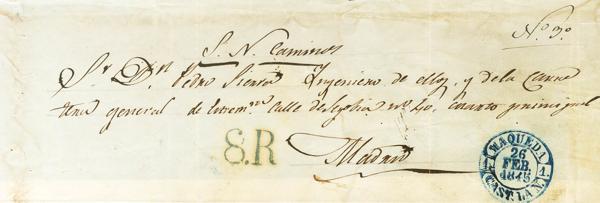 Nº 3º
S. N. Caminos
Sr. Dn. Pedro Sierra Ingeniero de ellos, y de la Carre
tera general de Estrem.ra Calle de Segobia nº 40, cuarto principal
Madrid
8.R
MAQUEDA
26
FEB.
1845
1 1
CAST. LA N.